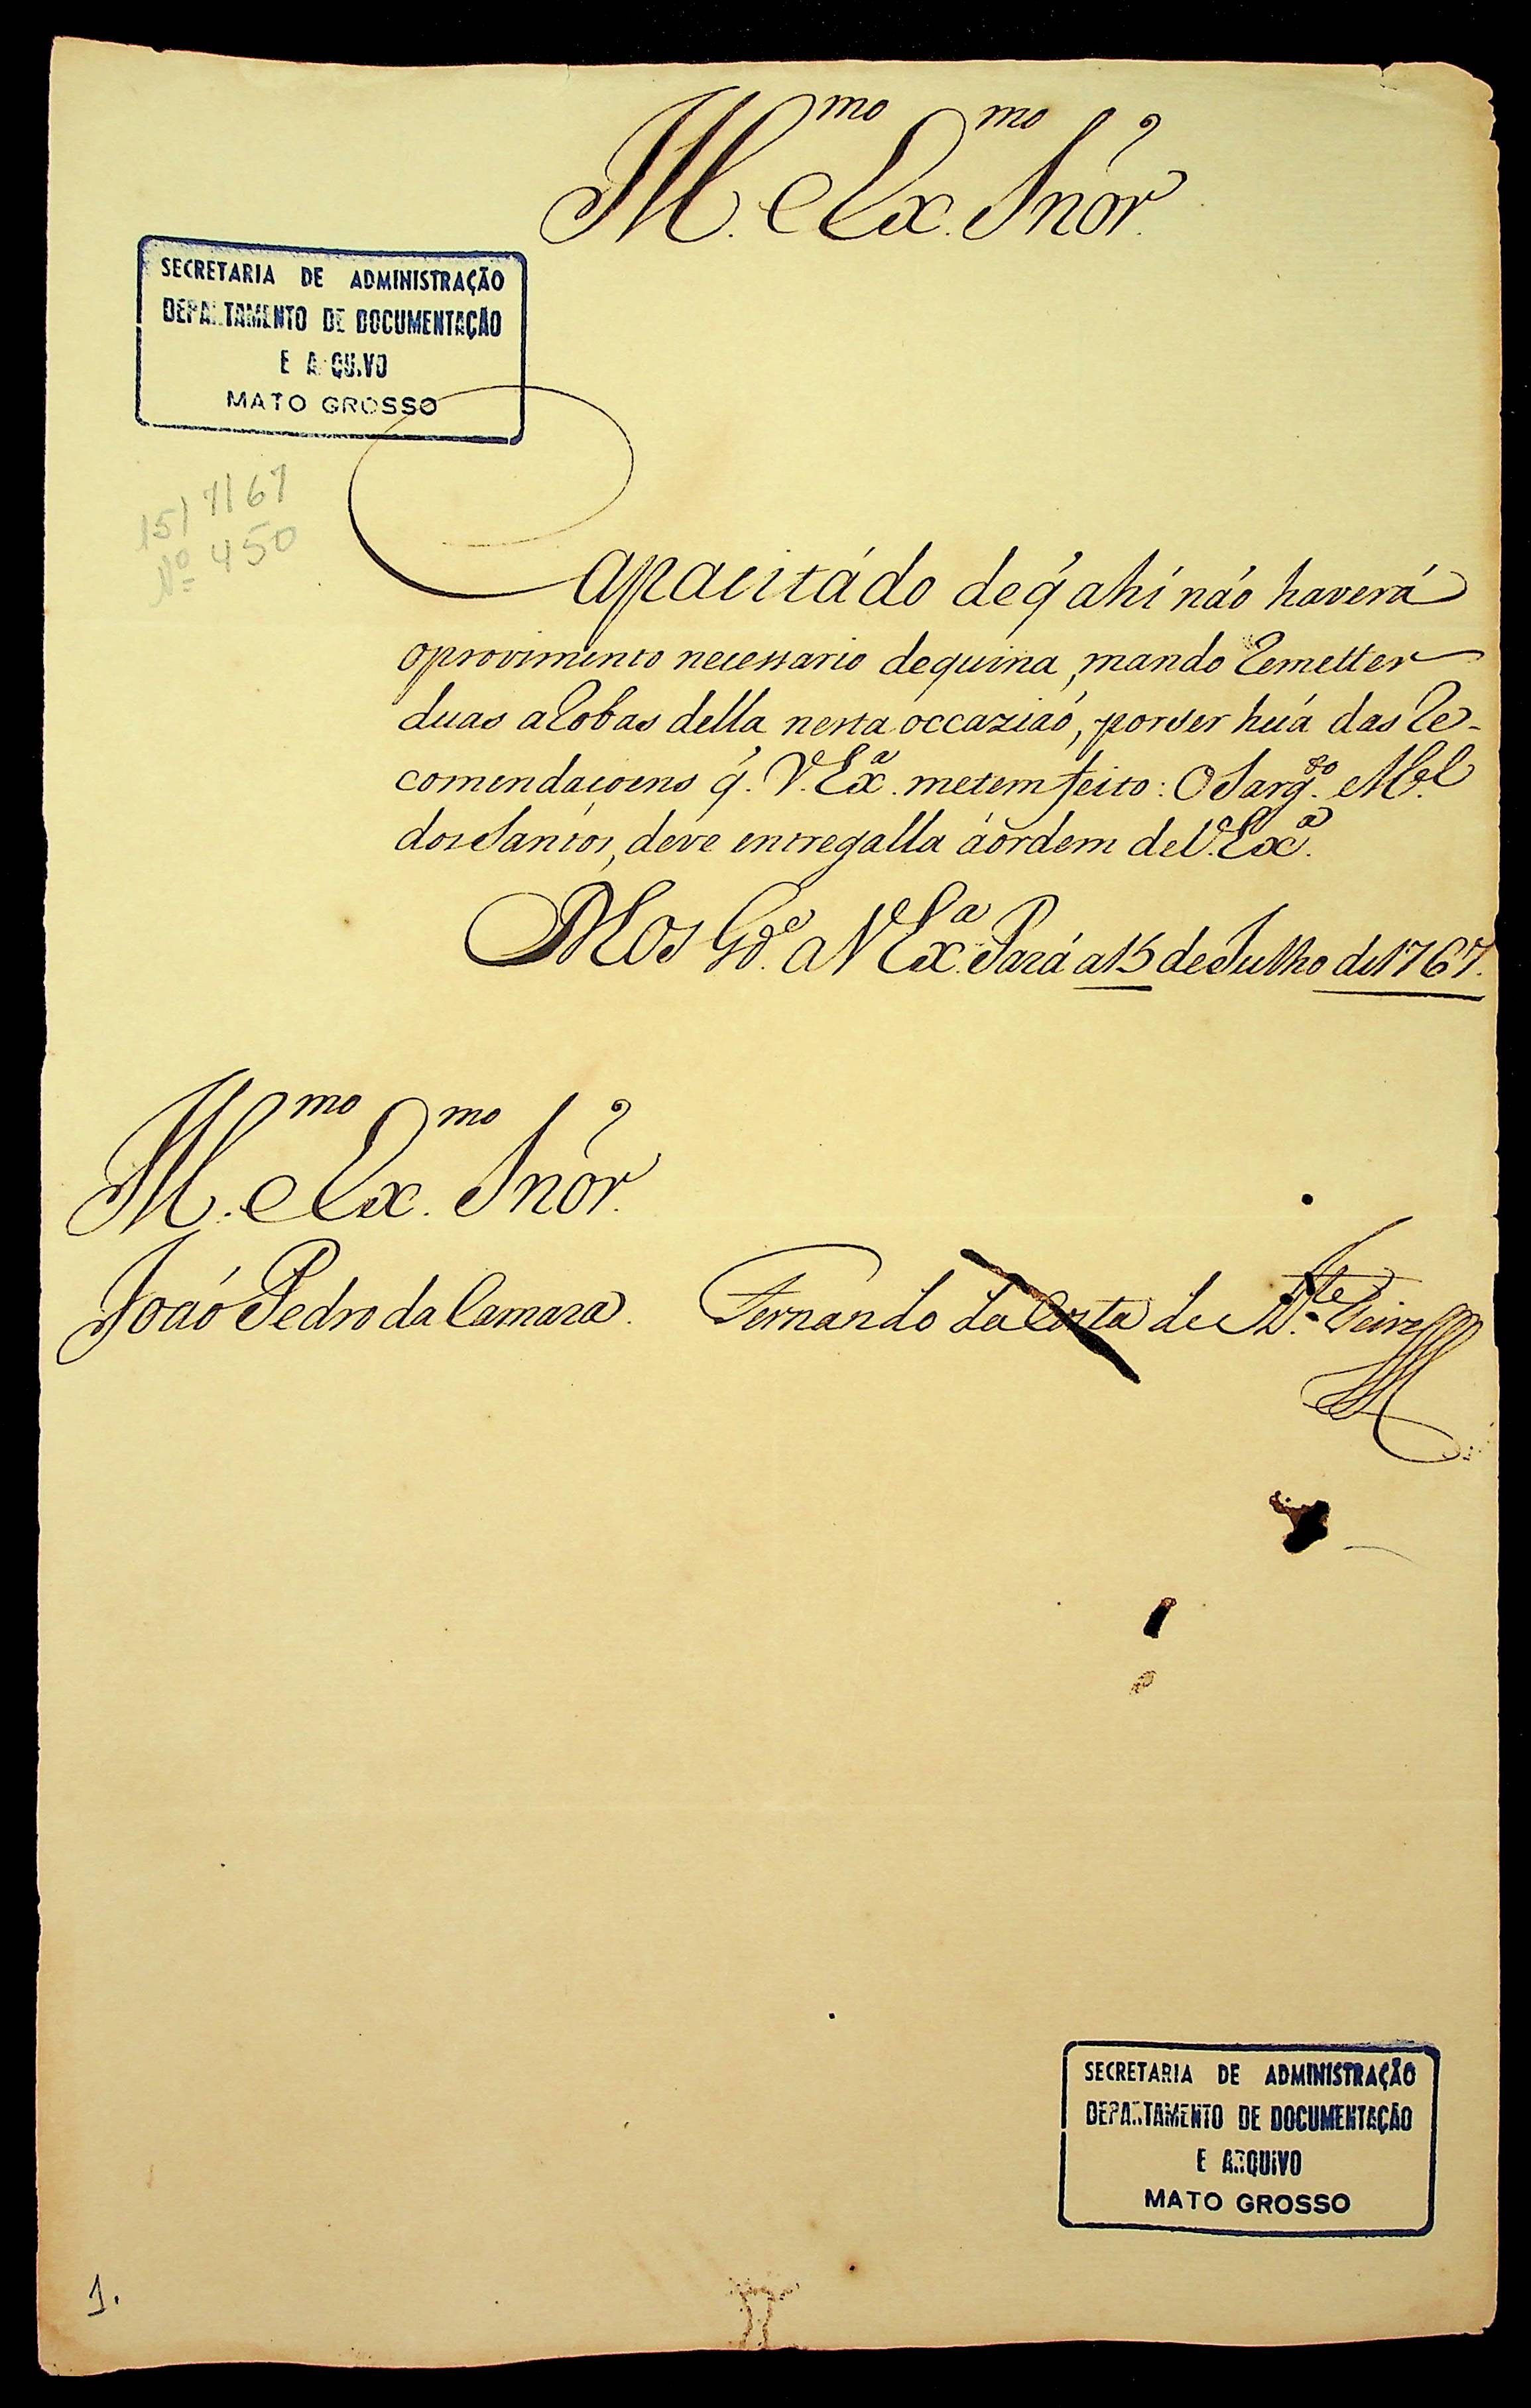 Ill.mo e Ex.mo Snõr.
SECRETARIA DE ADMINISTRAÇÃO
DEPARTAMENTO DE DOCUMENTAÇÃO
E ARQUIVO
MATO GROSSO
15/7/67
Nº 450
Capacitádo de q̃ ahi naõ haverá
o provimento necessario de quina, mando Remetter
duas aRobas della nesta occaziaõ, por ser huã das Re-
comendaçoens q̃. V. Ex.ª me tem feito: O Sarg.to M.el
dos Santos, deve entregalla á ordem de V. Ex.ª
D.s G.de a V Ex.ª Pará a 15 de Julho de 1767.
Ill.mo e Ex.mo Snõr.
Joaõ Pedro da Camara.
Fernando da Costa de At.de Teive
SECRETARIA DE ADMINISTRAÇÃO
DEPARTAMENTO DE DOCUMENTAÇÃO
E ARQUIVO
MATO GROSSO
1.